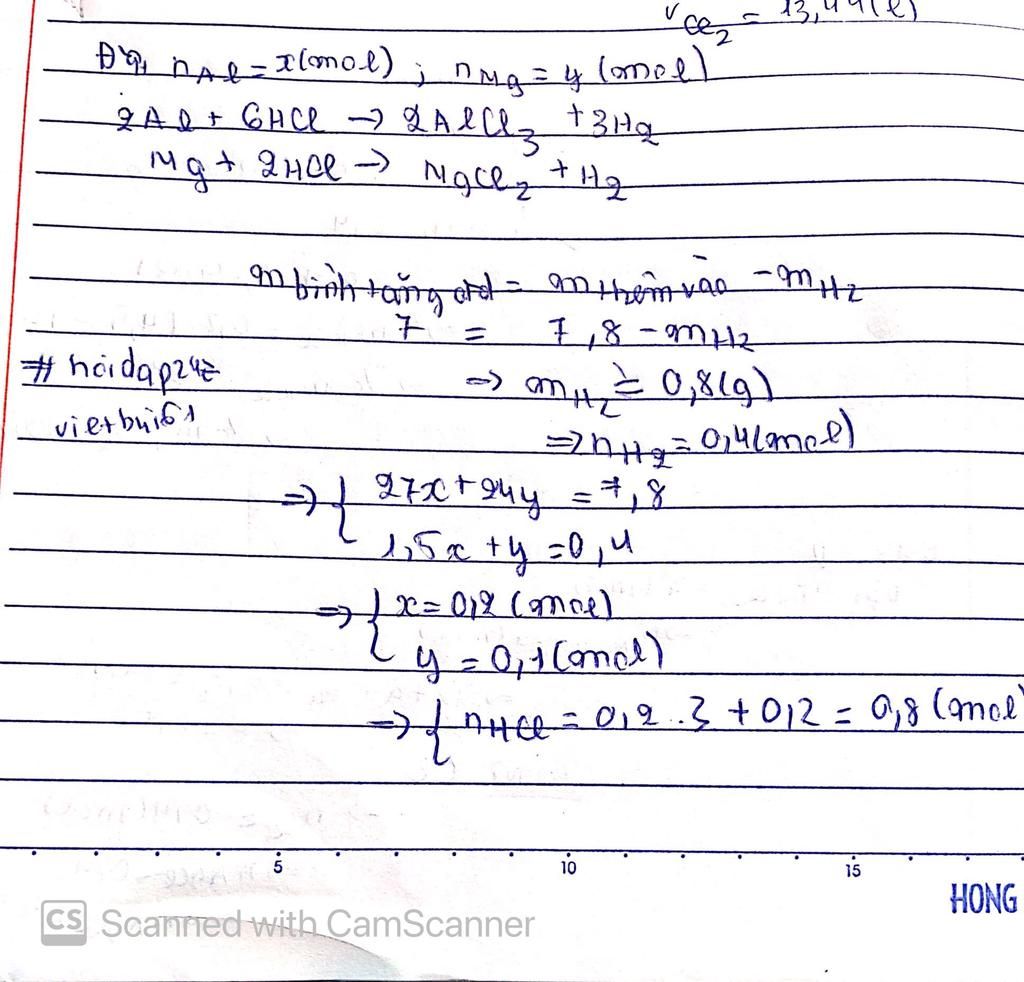 V Cl₂ = 13,44(l)
Đặt nAl = x(mol) ; nMg = y (mol)
2Al + 6HCl → 2AlCl₃ + 3H₂
Mg + 2HCl → MgCl₂ + H₂
m bình tăng = m thêm vào - mH₂
7 = 7,8 - mH₂
#hoidap247 ⇒ mH₂ = 0,8(g)
vietbui61
⇒ nH₂ = 0,4(mol)
⇒ { 27x + 24y = 7,8
1,5x + y = 0,4
⇒ { x = 0,2 (mol)
y = 0,1 (mol)
⇒ { nHCl = 0,2 . 3 + 0,2 = 0,8 (mol
5 10 15
HONG
CS Scanned with CamScanner